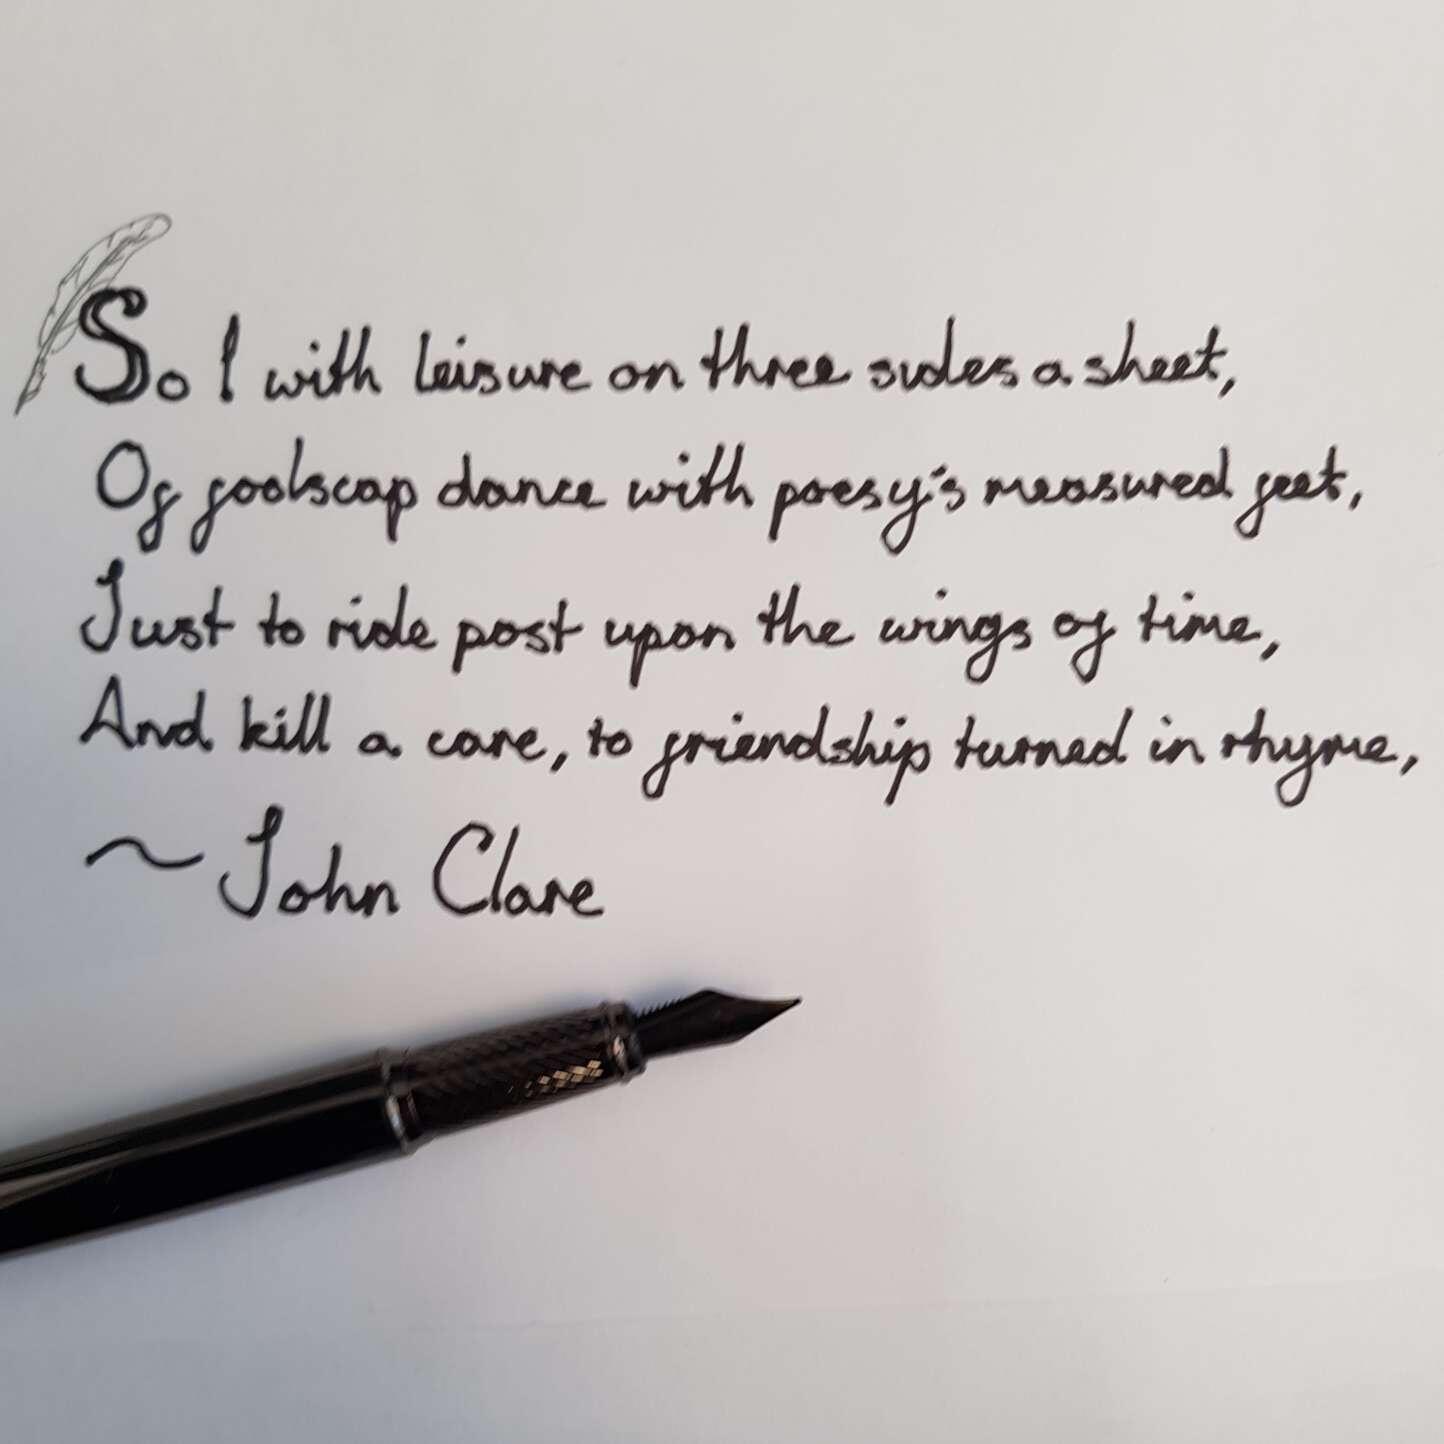 So I with leisure on three sides a sheet,
Of foolscap dance with poesy's measured feet,
Just to ride post upon the wings of time,
And kill a care, to friendship turned in rhyme,
~ John Clare